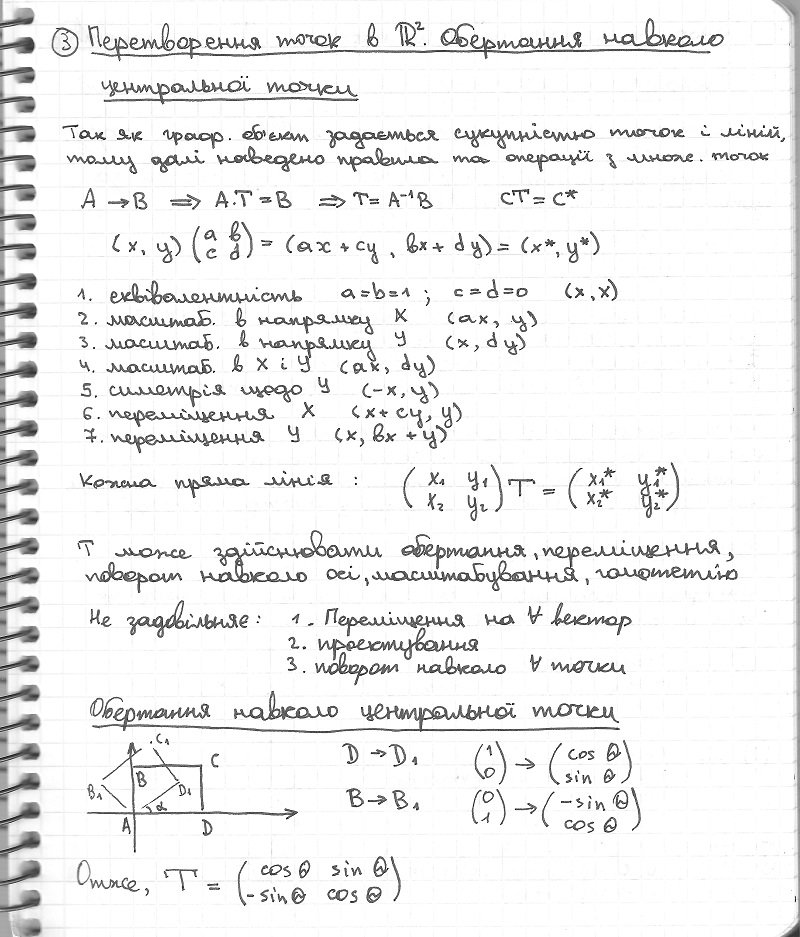 ③ Перетворення точок в ℝ². Обертання навколо
центральної точки
Так як граф. об'єкт задається сукупністю точок і ліній,
тому далі наведено правила та операції з множ. точок
A → B ⟹ A.T = B ⟹ T = A⁻¹B CT = C*
(x, y) (a b / c d) = (ax + cy, bx + dy) = (x*, y*)
1. еквівалентність a=b=1 ; c=d=0 (x, x)
2. масштаб. в напрямку X (ax, y)
3. масштаб. в напрямку Y (x, dy)
4. масштаб. в X і Y (ax, dy)
5. симетрія щодо Y (-x, y)
6. переміщення X (x + cy, y)
7. переміщення Y (x, bx + y)
Кожна пряма лінія : (x₁ y₁ / x₂ y₂) T = (x₁* y₁* / x₂* y₂*)
T може здійснювати обертання, переміщення,
поворот навколо осі, масштабування, гомотетію
Не задовільняє: 1. Переміщення на ∀ вектор
2. проектування
3. поворот навколо ∀ точки
Обертання навколо центральної точки
C₁
B C
B₁ D₁
α
A D
D → D₁ (1 / 0) → (cos θ / sin θ)
B → B₁ (0 / 1) → (-sin θ / cos θ)
Отже, T = (cos θ sin θ / -sin θ cos θ)